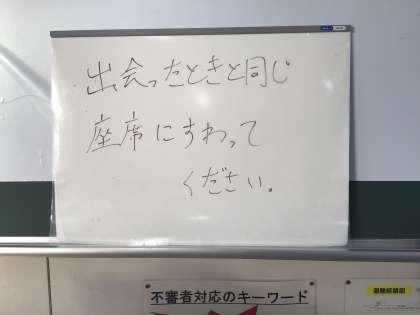 出会ったときと同じ
座席にすわって
ください.
不審者対応のキーワード
避難経路図